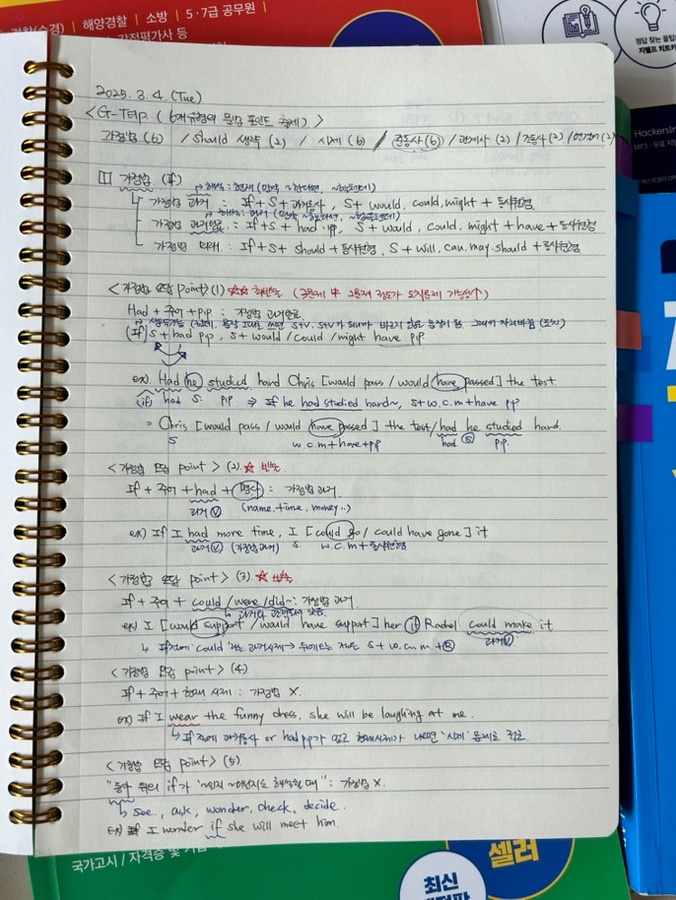 해양경찰 | 소방 | 5·7급 공무원
감정평가사 등
정답 찾는 꿀팁
지텔프 치트키
HackersIn
MP3·무료
2025. 3. 4. (Tue)
<G-Telp (6개 유형의 문법 포인트 출제)>
가정법 (6) / should 생략 (2) / 시제 (6) / 준동사 (6) / 관계사 (2) / 조동사 (2) / 연결어 (2)
1 가정법 (if)
해석: 현재 (만약 ~한다면, ~할텐데)
가정법 과거 : If + S + 과거동사, S + would, could, might + 동사원형
해석: 과거 (만약 ~했다면, ~했을텐데)
가정법 과거완료 : If + S + had pp, S + would, could, might + have + 동사원형
가정법 미래 : If + S + should + 동사원형, S + will, can, may, should + 동사원형
<가정법 정답 point> (1) ☆☆ 최빈출
Had + 주어 + pip : 가정법 과거완료
(If) S + had pip, S + would / could / might have pip
ex) Had he studied hard Chris [would pass / would have passed] the test
(if) had S. pip ⇒ If he had studied hard~, S + w.c.m + have pp
= Chris [would pass / would have passed] the test / had he studied hard.
S w.c.m + have + pp had S p.p.
<가정법 정답 point> (2) ☆ 빈출
If + 주어 + had + 명사 : 가정법 과거
과거 V (name, time, money..)
ex) If I had more time, I [could go / could have gone] it
과거 V (가정법 과거) S. w.c.m + 동사원형
<가정법 정답 point> (3) ☆ 빈출
If + 주어 + could / were / did~ : 가정법 과거
ex) I [would support / would have support] her if Rachel could make it
과거 V
<가정법 정답 point> (4)
If + 주어 + 현재 시제 : 가정법 X.
ex) If I wear the funny dress, she will be laughing at me.
↳ If절에 과거동사 or had pp가 없고 현재시제가 나오면 '시제' 문제로 접근
<가정법 정답 point> (5)
"동사 뒤의 if가 '~인지 ~아닌지로 해석될 때" : 가정법 X.
↳ see, ask, wonder, check, decide.
ex) I wonder if she will meet him.
국가고시 / 자격증 및
최신
셀러